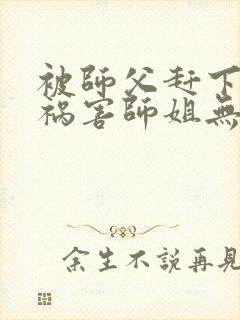 被師父赶下
祸害師姐無
余生不說再見